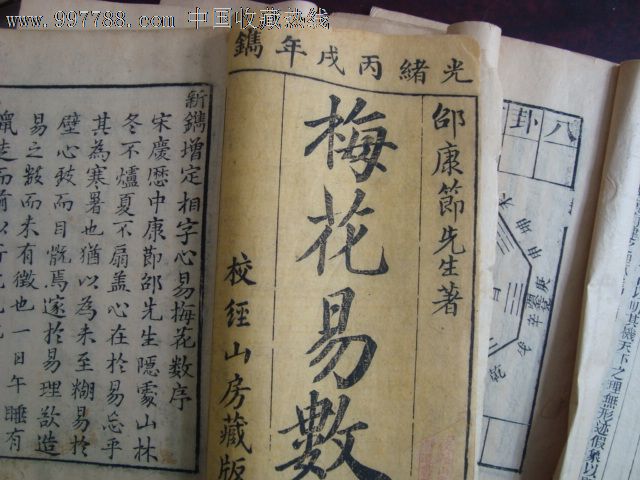 www.997788.com 中国收藏热线
光緒丙戌年鐫
邵康節先生著
梅花易數
校經山房藏版
新鐫增定相字心易梅花數序
宋慶歷中康節邵先生隱處山林
冬不爐夏不扇盖心在於易忘乎
其為寒暑也猶以為未至糊易於
壁心致而目翫焉邃於易理欲造
易之數而未有徵也一日午睡有
八卦
其機天下之理無形迹假象以